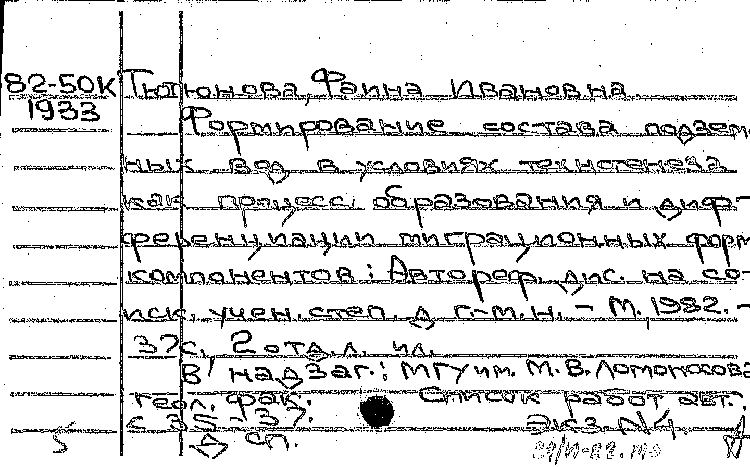 82-50к Тютюнова, Фаина Ивановна.
1933 Формирование состава подзем-
ных вод в условиях техногенеза
как процесс образования и диф-
ференциации миграционных форм
компонентов: Автореф. дис. на со-
иск. учен. степ. д. г.-м. н. - М. 1982. -
37 с., 2 отд. л. ил.
В надзаг.: МГУ им. М. В. Ломоносова
геол. фак. Список работ авт.:
с. 35-37. Экз. №4.
5 сп.